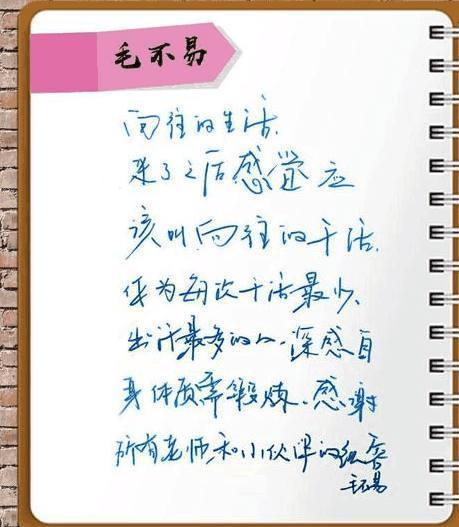 毛不易
向往的生活.
来了之后感觉应
该叫向往的干活.
作为每次干活最少.
出汗最多的人.深感自
身体质需锻炼.感谢
所有老师和小伙伴的照顾
毛不易